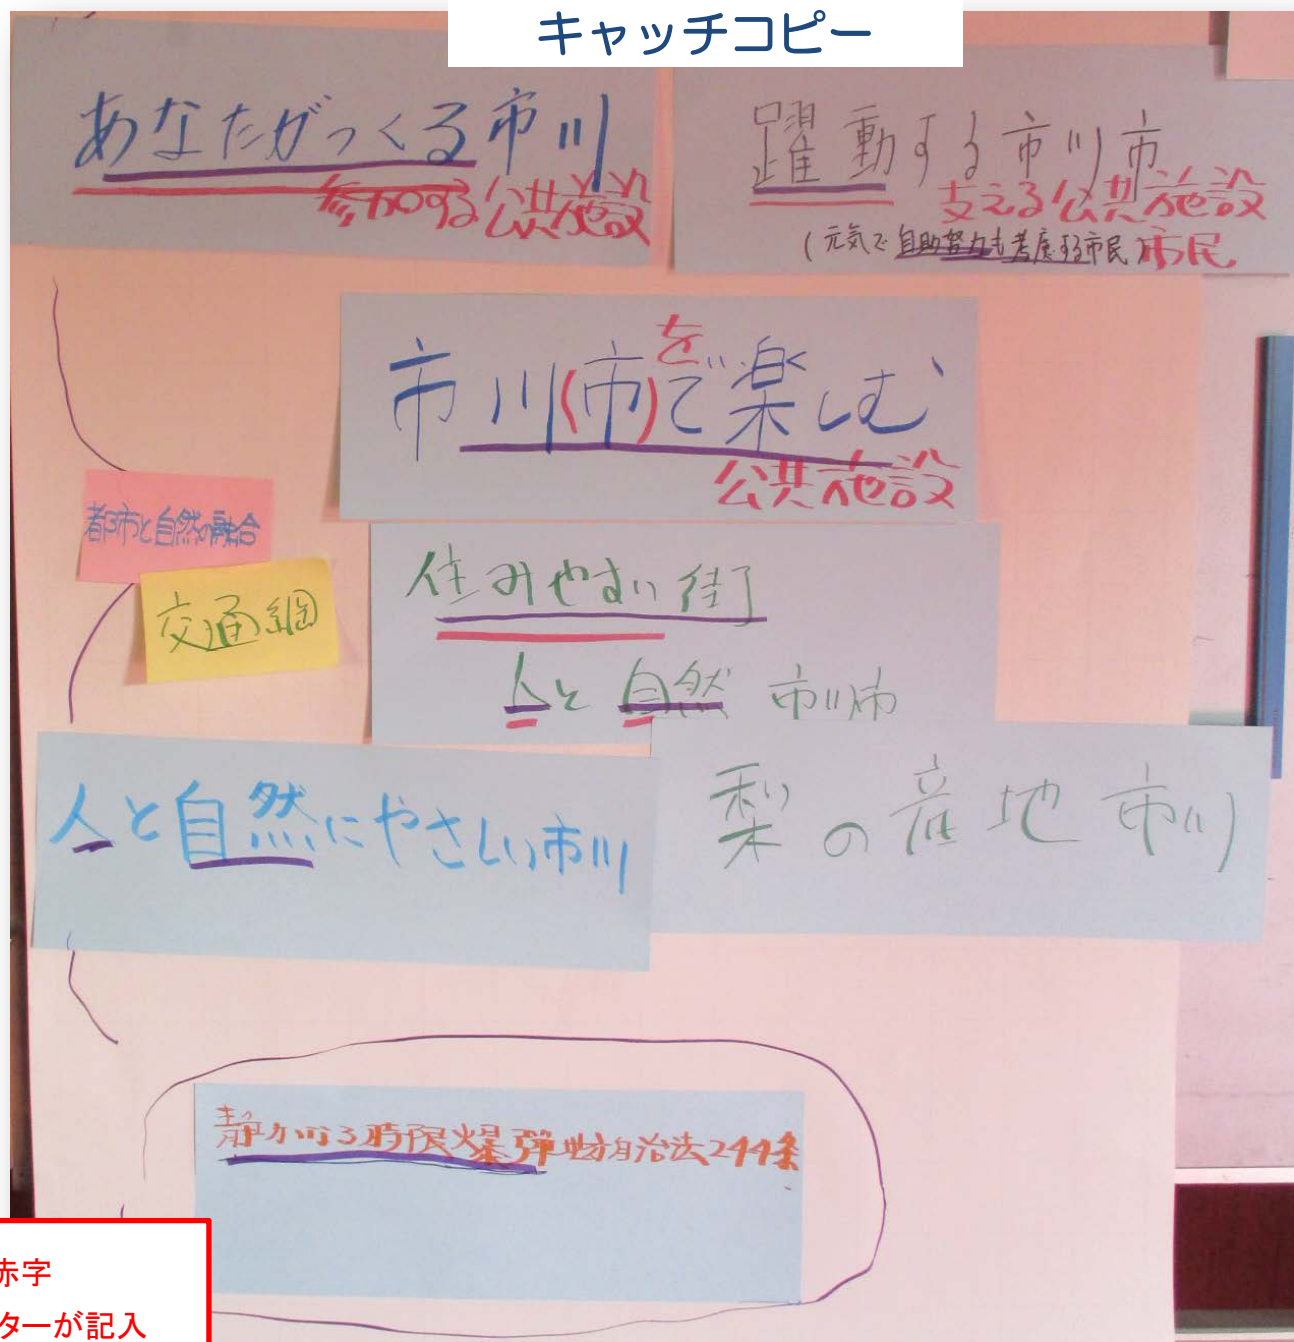 キャッチコピー
あなたがつくる市川
参加する公共施設
躍動する市川市
支える公共施設
(元気で自助努力も考慮する市民)市民
を
市川(市)で楽しむ
公共施設
都市と自然の融合
交通網
住みやすい街
人と自然 市川市
人と自然にやさしい市川
梨の産地市川
静かなる時限爆弾地方自治法244条
赤字
ターが記入